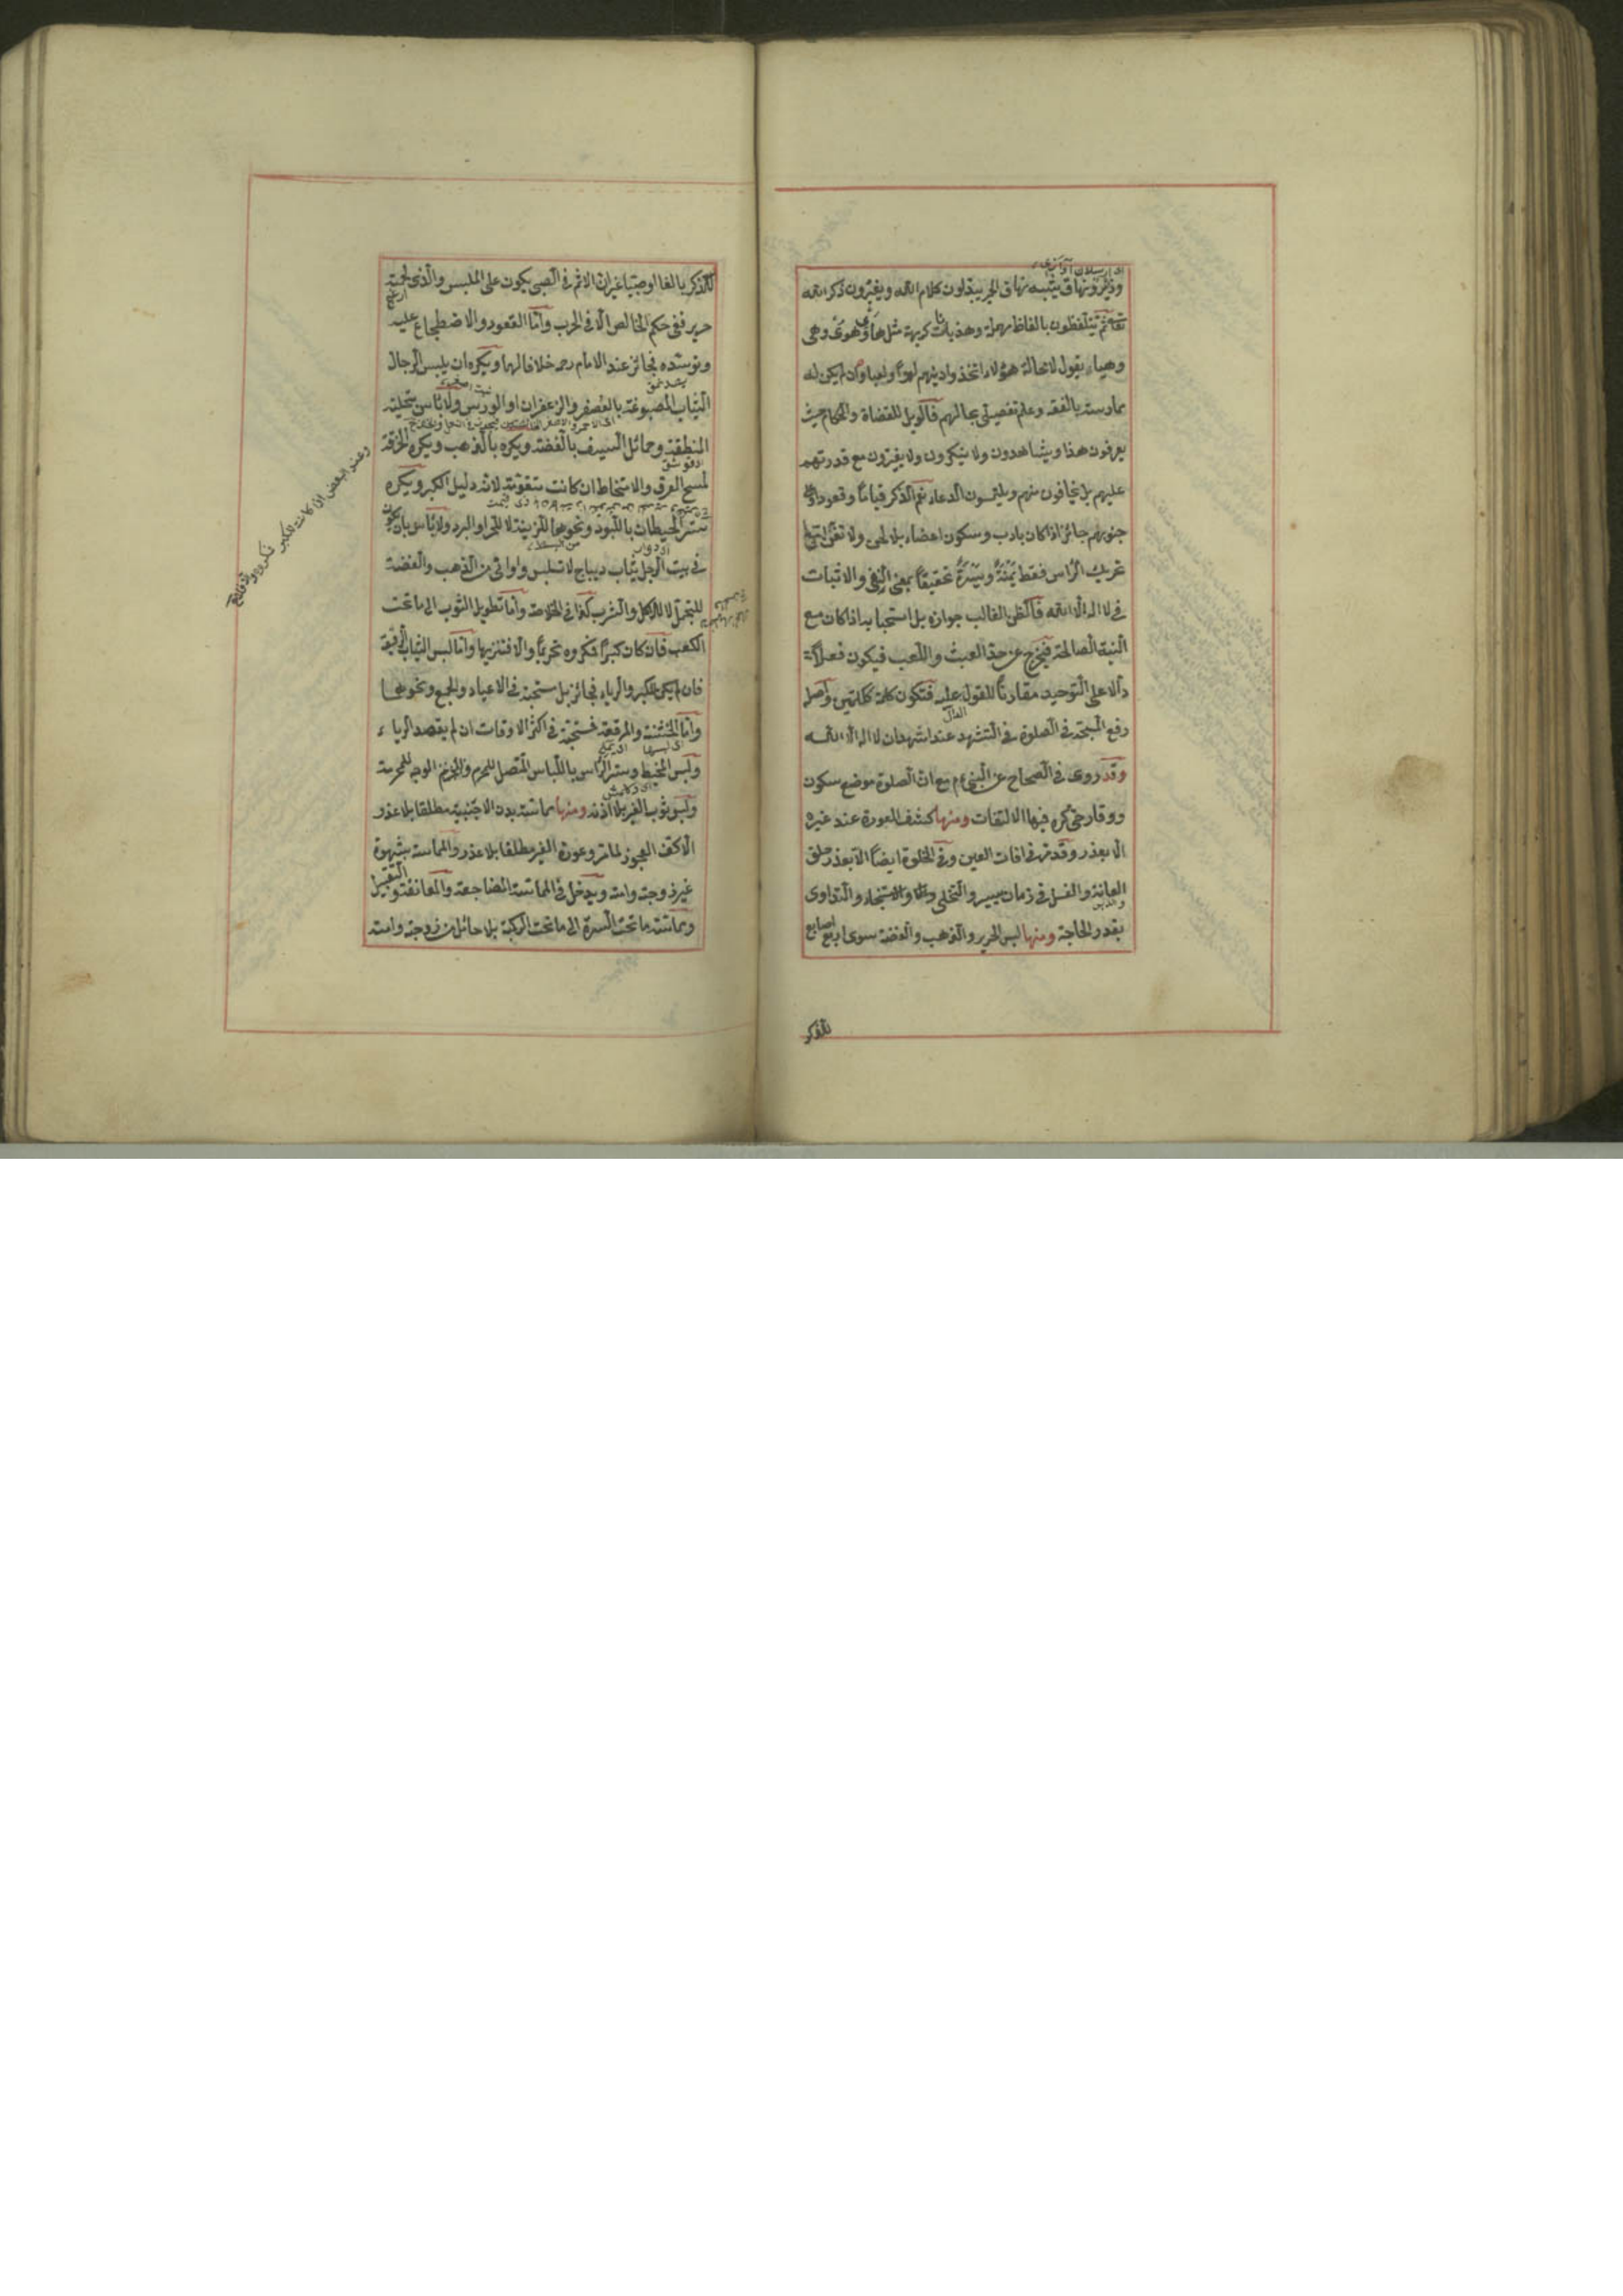 وزئير ونهاق يشبه نهاق الحمر يبدلون كلام الله ويغيرون ذكر الله
تعالى ثم يتلفظون بالفاظ مهملة وهذيانات كريهة مثل هاوى هوى وهى
وهيا يقول لا محالة هؤلاء اتخذوا دينهم لهوا ولعبا وان لم يكن له
ممارسة بالفقه وعلم تفصيلى بحالهم فالويل للقضاة والحكام حيث
يعرفون هذا ويشاهدون ولا ينكرون ولا يغيرون مع قدرتهم
عليهم بل يخافون منهم ويلتمسون الدعاء نعم الذكر قياما وقعودا وعلى
جنوبهم جائز اذا كان بادب وسكون اعضاء بلا لحن ولا تغن
تحريك الرأس فقط يمنة ويسرة تحقيقا بمعنى النفى والاثبات
فى لا اله الا الله فالظن الغالب جوازه بل استحبابه اذا كان مع
النية الصالحة فيخرج عن حد العبث واللعب فيكون فعلا
دالا على التوحيد مقارنا للقول عليه فتكون كلمة ككلمتين واصله
الدال
رفع المسبحة فى الصلوة فى التشهد عند اشهد ان لا اله الا الله
وقد روى فى الصحاح عن النبى عم مع ان الصلوة موضع سكون
ووقار حتى كره فيها الالتفات ومنها كشف العورة عند غيره
الا بعذر وقد مر فى افات العين وفى الخلوة ايضا الا بعذر حلق
العانة والغسل فى زمان يسير والتخلى والاستنجاء والتداوى
بقدر الحاجة ومنها لبس الحرير والذهب والفضة سوى اربع اصابع
للذكر
للذكر بالغا او صبيا غير ان الاثم فى الصبى يكون على الملبس والذى لحمته
حرير ففى حكم الخالص الا فى الحرب واما القعود والاضطجاع عليه
وتوسده فجائز عند الامام رحمه خلافا لهما ويكره ان يلبس الرجال
الثياب المصبوغة بالعصفر والزعفران او الورس ولا بأس بتحلية
المنطقة وحمائل السيف بالفضة ويكره بالذهب ويكره الخرقة
لمسح العرق والامتخاط ان كانت متقومة لانه دليل الكبر ويكره
ستر الحيطان باللبود ونحوها للزينة لا للحر او البرد ولا بأس بان يكون
فى بيت الرجل ثياب ديباج لا تلبس واوانى من الذهب والفضة
للتجمل لا للاكل والشرب كذا فى الخلاصة واما تطويل الثوب الى ما تحت
الكعب فان كان كبرا فكروه تحريما والا فتنزيها واما لبس الثياب الرقيقة
فان لم يكن للكبر والرياء فجائز بل مستحبة فى الاعياد والجمع ونحوهما
واما الخشنة والمرقعة فمستحبة فى اكثر الاوقات ان لم يقصد الرياء
ولبس المخيط وستر الرأس باللباس المتصل للمحرم والوجه للمحرمة
ولبس ثوب الغير بلا اذنه ومنها مماسة بدن الاجنبية مطلقا بلا عذر
الا كف العجوز لما مر وعورة الغير مطلقا بلا عذر والمماسة بشهوة
غير زوجته وامته ويدخل فى المماسة المضاجعة والمعانقة والتقبيل
ومماسة ما تحت السرة الى ما تحت الركبة بلا حائل من زوجته وامته
وعند البعض ان كانت للكبر فكروه والا فلا